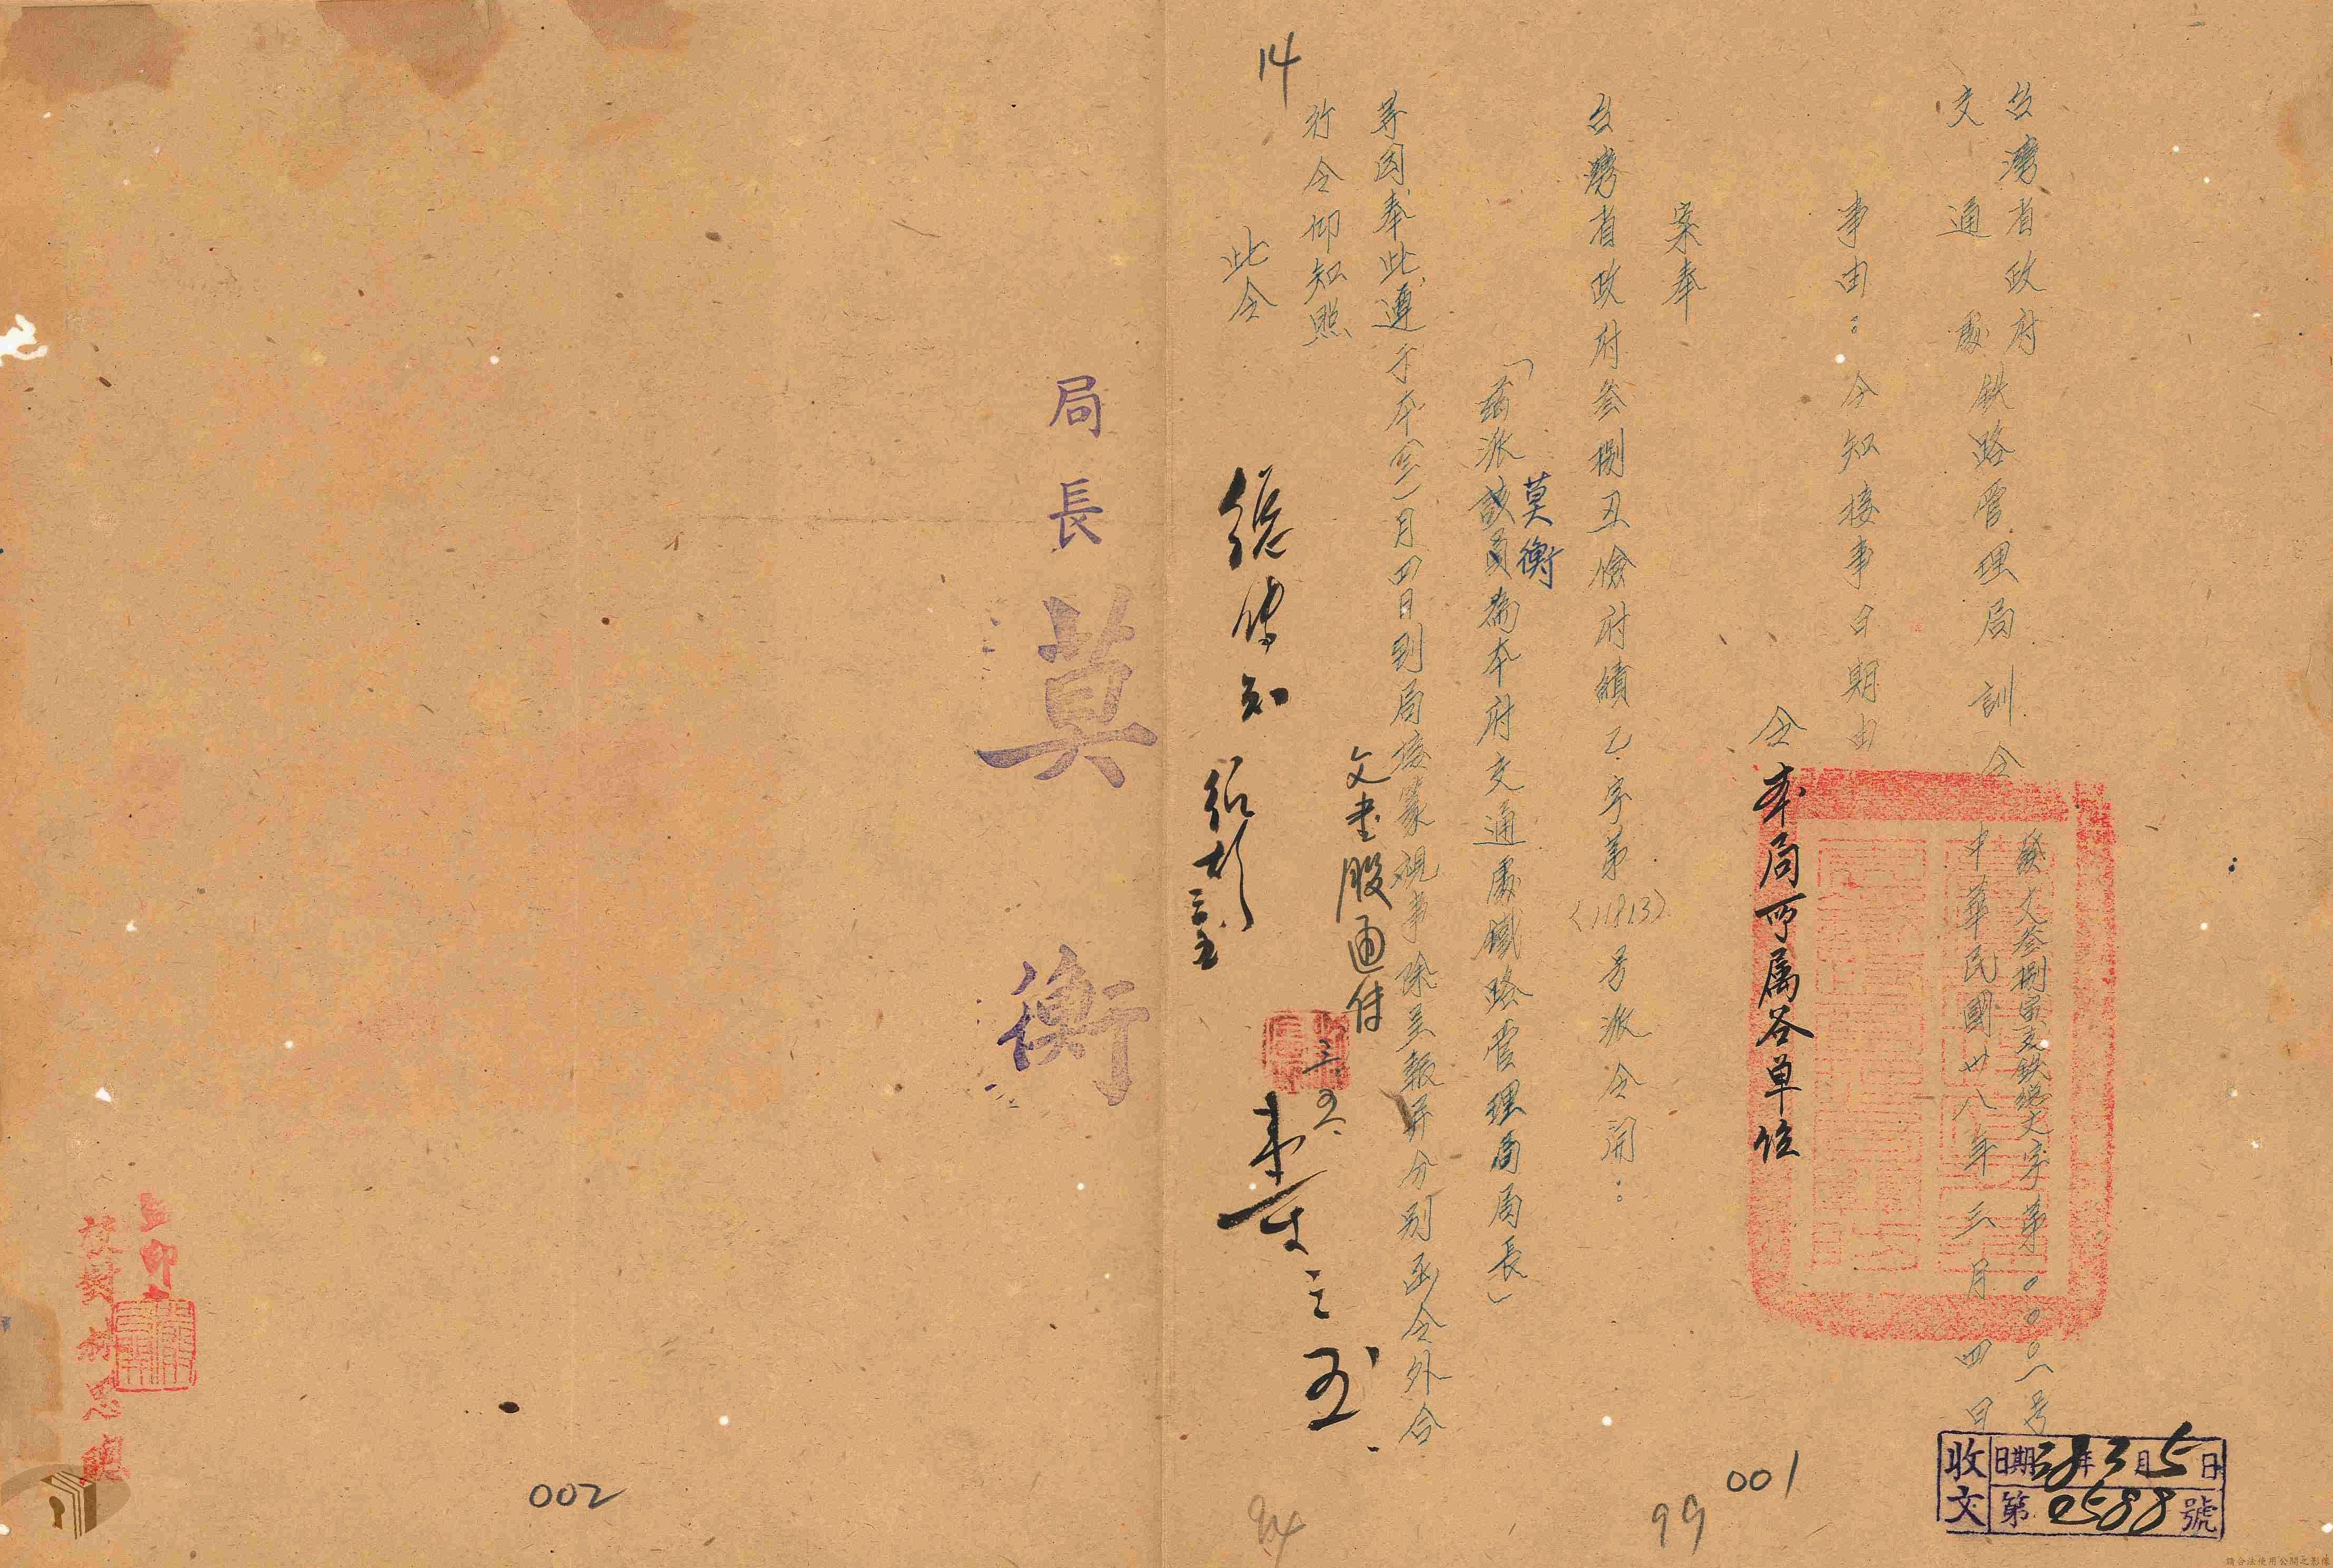 台灣省政府
交通處鉄路管理局 訓令
發文叁捌寅支鉄總文字第〇〇〇一号
中華民國卅八年三月四日
事由：令知接事日期由
令本局所属各單位
案奉
台灣省政府叁捌丑儉府績乙字第(11813)号派令開：
「茲派該員莫衡為本府交通處鐵路管理局局長」
等因奉此遵于本(三)月四日到局接篆視事除呈報并分别函令外合
行令仰知照
此令
文書股通傳
三.五.
14
局長 莫衡
監印
校對
收文
日期38年3月5日
第0588號
001
99
94
002
請合法使用公開之影像